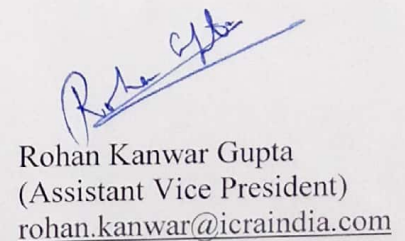 Rohan Gupta
Rohan Kanwar Gupta
(Assistant Vice President)
rohan.kanwar@icraindia.com